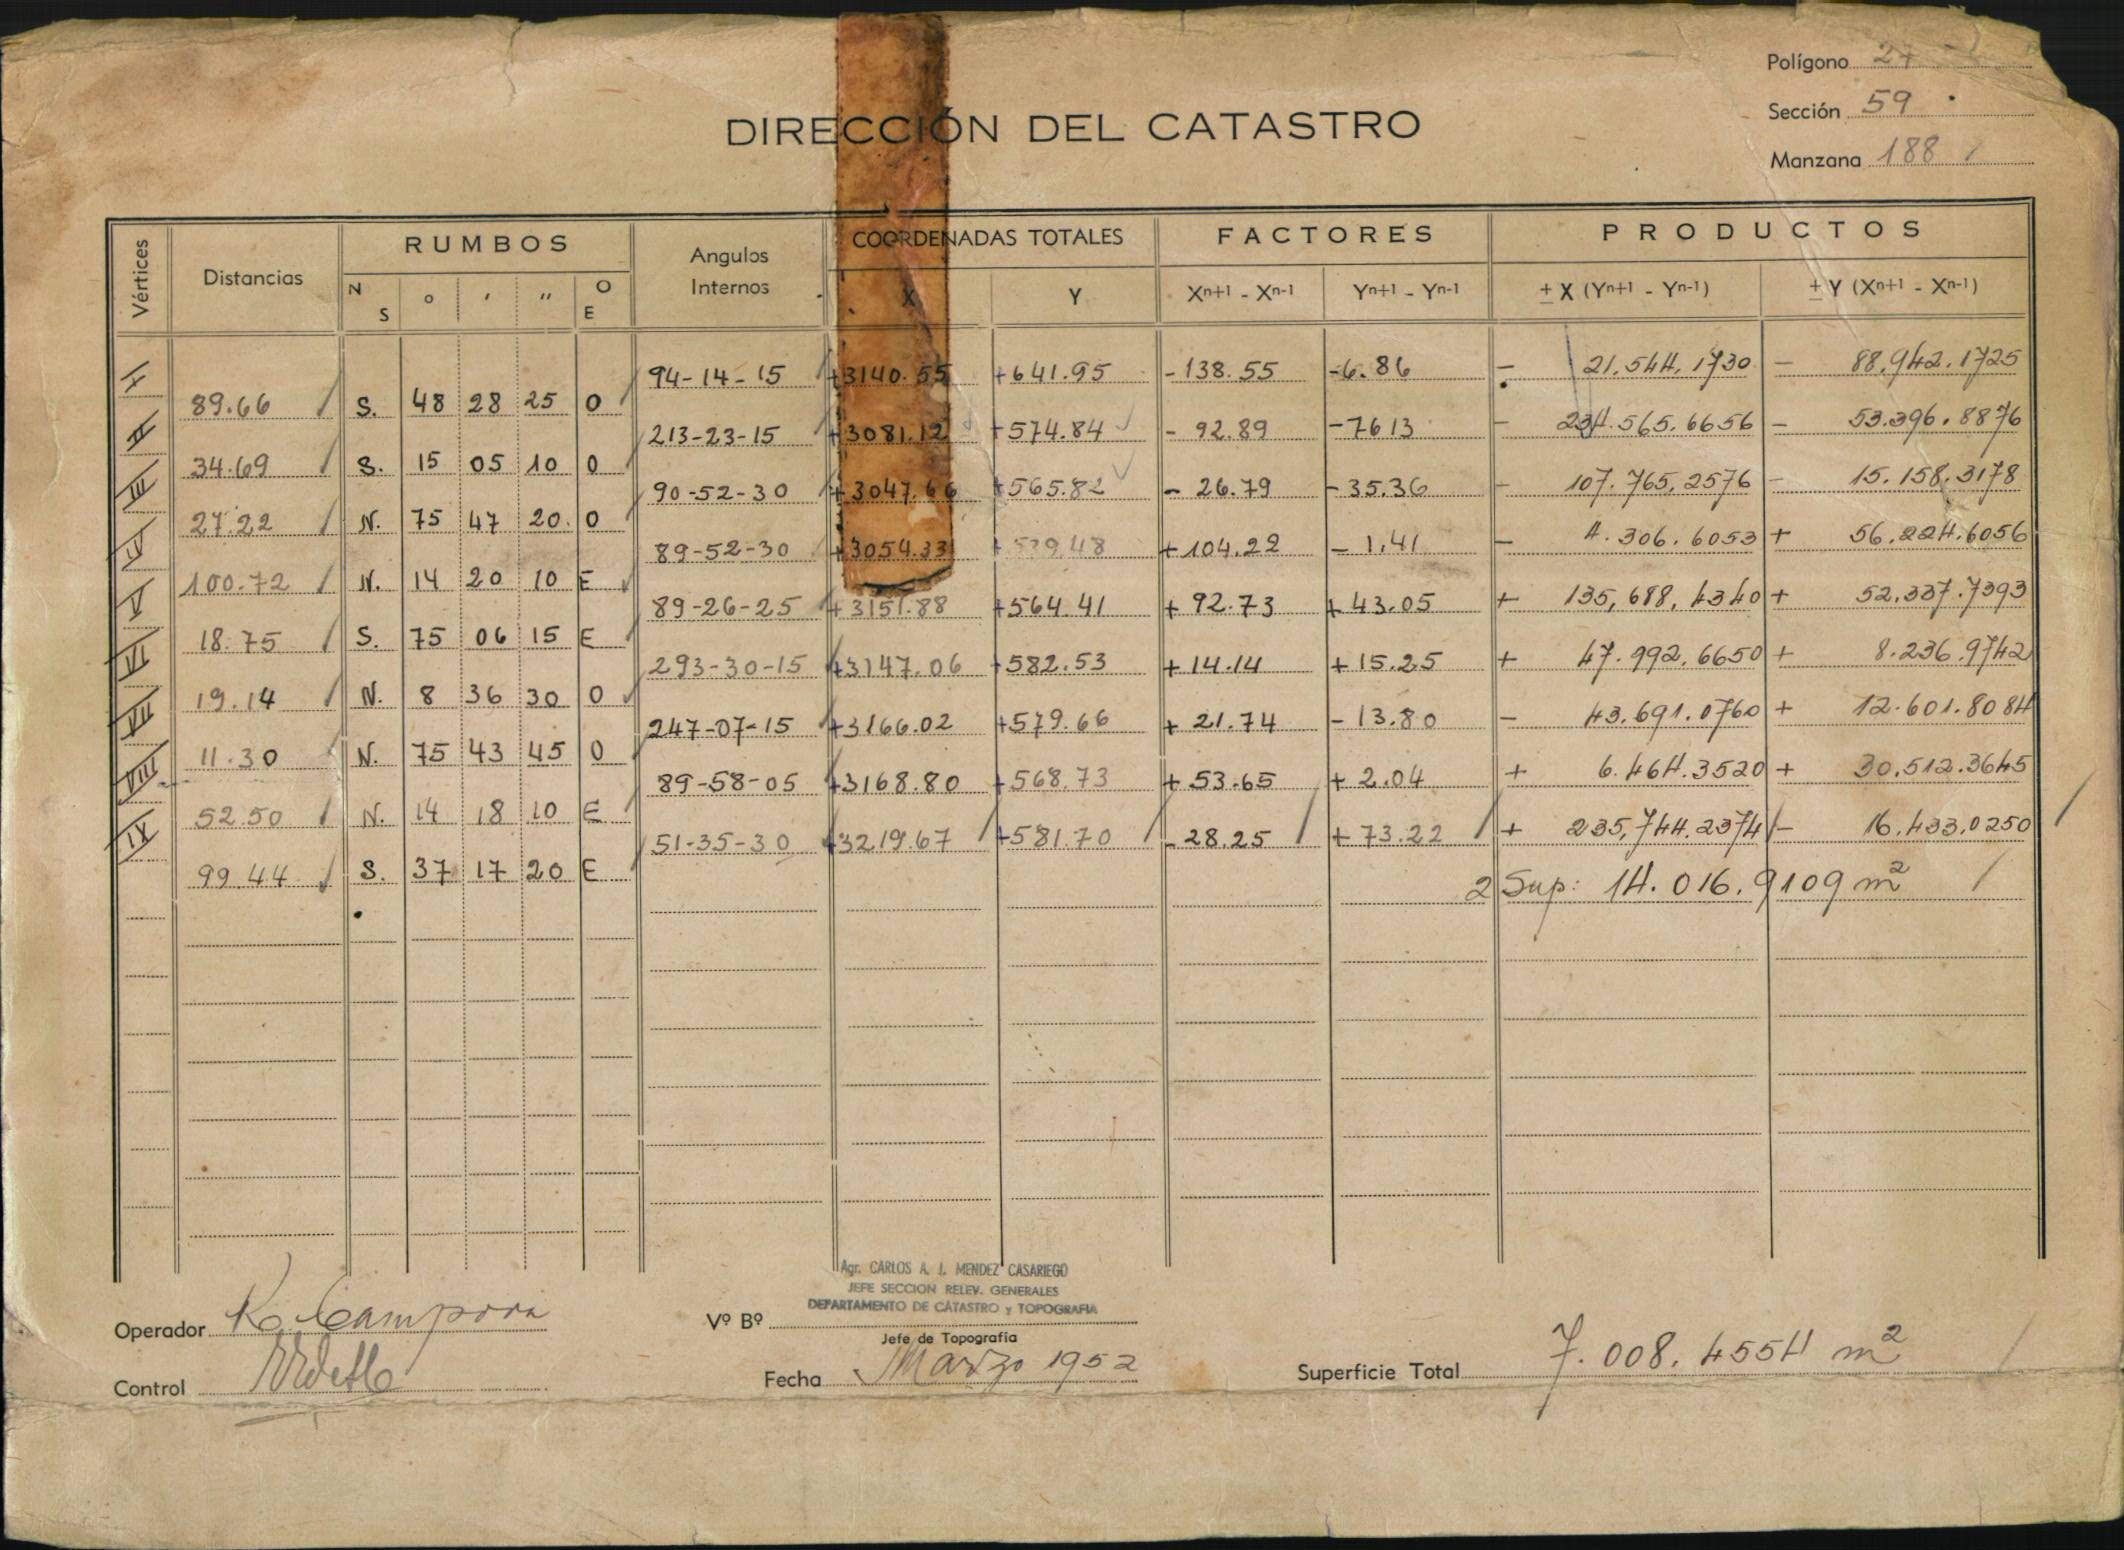 Polígono 27
Sección 59
Manzana 188
DIRECCIÓN DEL CATASTRO
Vértices Distancias RUMBOS Angulos Internos COORDENADAS TOTALES FACTORES PRODUCTOS
N S o ' '' O E X Y Xn+1 - Xn-1 Yn+1 - Yn-1 ± X (Yn+1 - Yn-1) ± Y (Xn+1 - Xn-1)
I 94-14-15 +3140.55 +641.95 -138.55 -6.86 - 21.544.1730 - 88.942.1725
89.66 S. 48 28 25 O
II 213-23-15 +3081.12 +574.84 - 92.89 -7613 - 234.565.6656 - 53.396.8876
34.69 S. 15 05 10 O
III 90-52-30 +3047.66 +565.82 - 26.79 -35.36 - 107.765.2576 - 15.158.3178
27.22 N. 75 47 20. O
IV 89-52-30 +3054.33 +539.48 +104.22 - 1.41 - 4.306.6053 + 56.224.6056
100.72 N. 14 20 10 E
V 89-26-25 +3151.88 +564.41 + 92.73 +43.05 + 135,688,4340 + 52.337.7393
18.75 S. 75 06 15 E
VI 293-30-15 +3147.06 +582.53 +14.14 +15.25 + 47.992.6650 + 8.236.9742
19.14 N. 8 36 30 O
VII 247-07-15 +3166.02 +579.66 + 21.74 - 13.80 - 43.691.0760 + 12.601.8084
11.30 N. 75 43 45 O
VIII 89-58-05 +3168.80 +568.73 + 53.65 + 2.04 + 6.464.3520 + 30.512.3645
52.50 N. 14 18 10 E
IX 51-35-30 +3219.67 +581.70 - 28.25 + 73.22 + 235,744.2374 - 16.433.0250
99.44 S. 37 17 20 E
2 Sup: 14.016.9109 m²
Agr. CARLOS A. I. MENDEZ CASARIEGO
JEFE SECCION RELEV. GENERALES
DEPARTAMENTO DE CATASTRO y TOPOGRAFIA
Operador Campora
Vº Bº
Jefe de Topografía
Control
Fecha Marzo 1952
Superficie Total 7.008.4554 m²